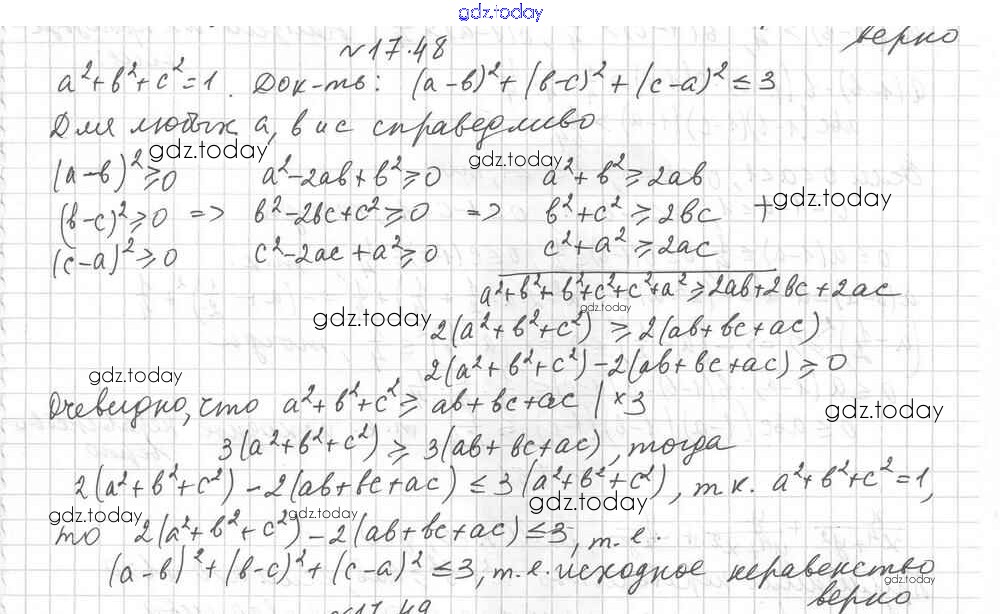 gdz.today
верно
№17.48
a²+b²+c²=1. Док-ть: (a-b)²+(b-c)²+(c-a)²≤3
Для любых a, b и c справедливо
gdz.today
gdz.today
(a-b)²≥0 a²-2ab+b²≥0 a²+b²≥2ab
(b-c)²≥0 => b²-2bc+c²≥0 => b²+c²≥2bc +
gdz.today
(c-a)²≥0 c²-2ac+a²≥0 c²+a²≥2ac
a²+b²+b²+c²+c²+a²≥2ab+2bc+2ac
gdz.today
gdz.today
2(a²+b²+c²)≥2(ab+bc+ac)
2(a²+b²+c²)-2(ab+bc+ac)≥0
gdz.today
Очевидно, что a²+b²+c²≥ab+bc+ac |×3
gdz.today
3(a²+b²+c²)≥3(ab+bc+ac), тогда
2(a²+b²+c²)-2(ab+bc+ac)≤3(a²+b²+c²), т.к. a²+b²+c²=1,
gdz.today
gdz.today
gdz.today
то 2(a²+b²+c²)-2(ab+bc+ac)≤3, т.е.
(a-b)²+(b-c)²+(c-a)²≤3, т.е. исходное неравенство
gdz.today
верно.
№17.49